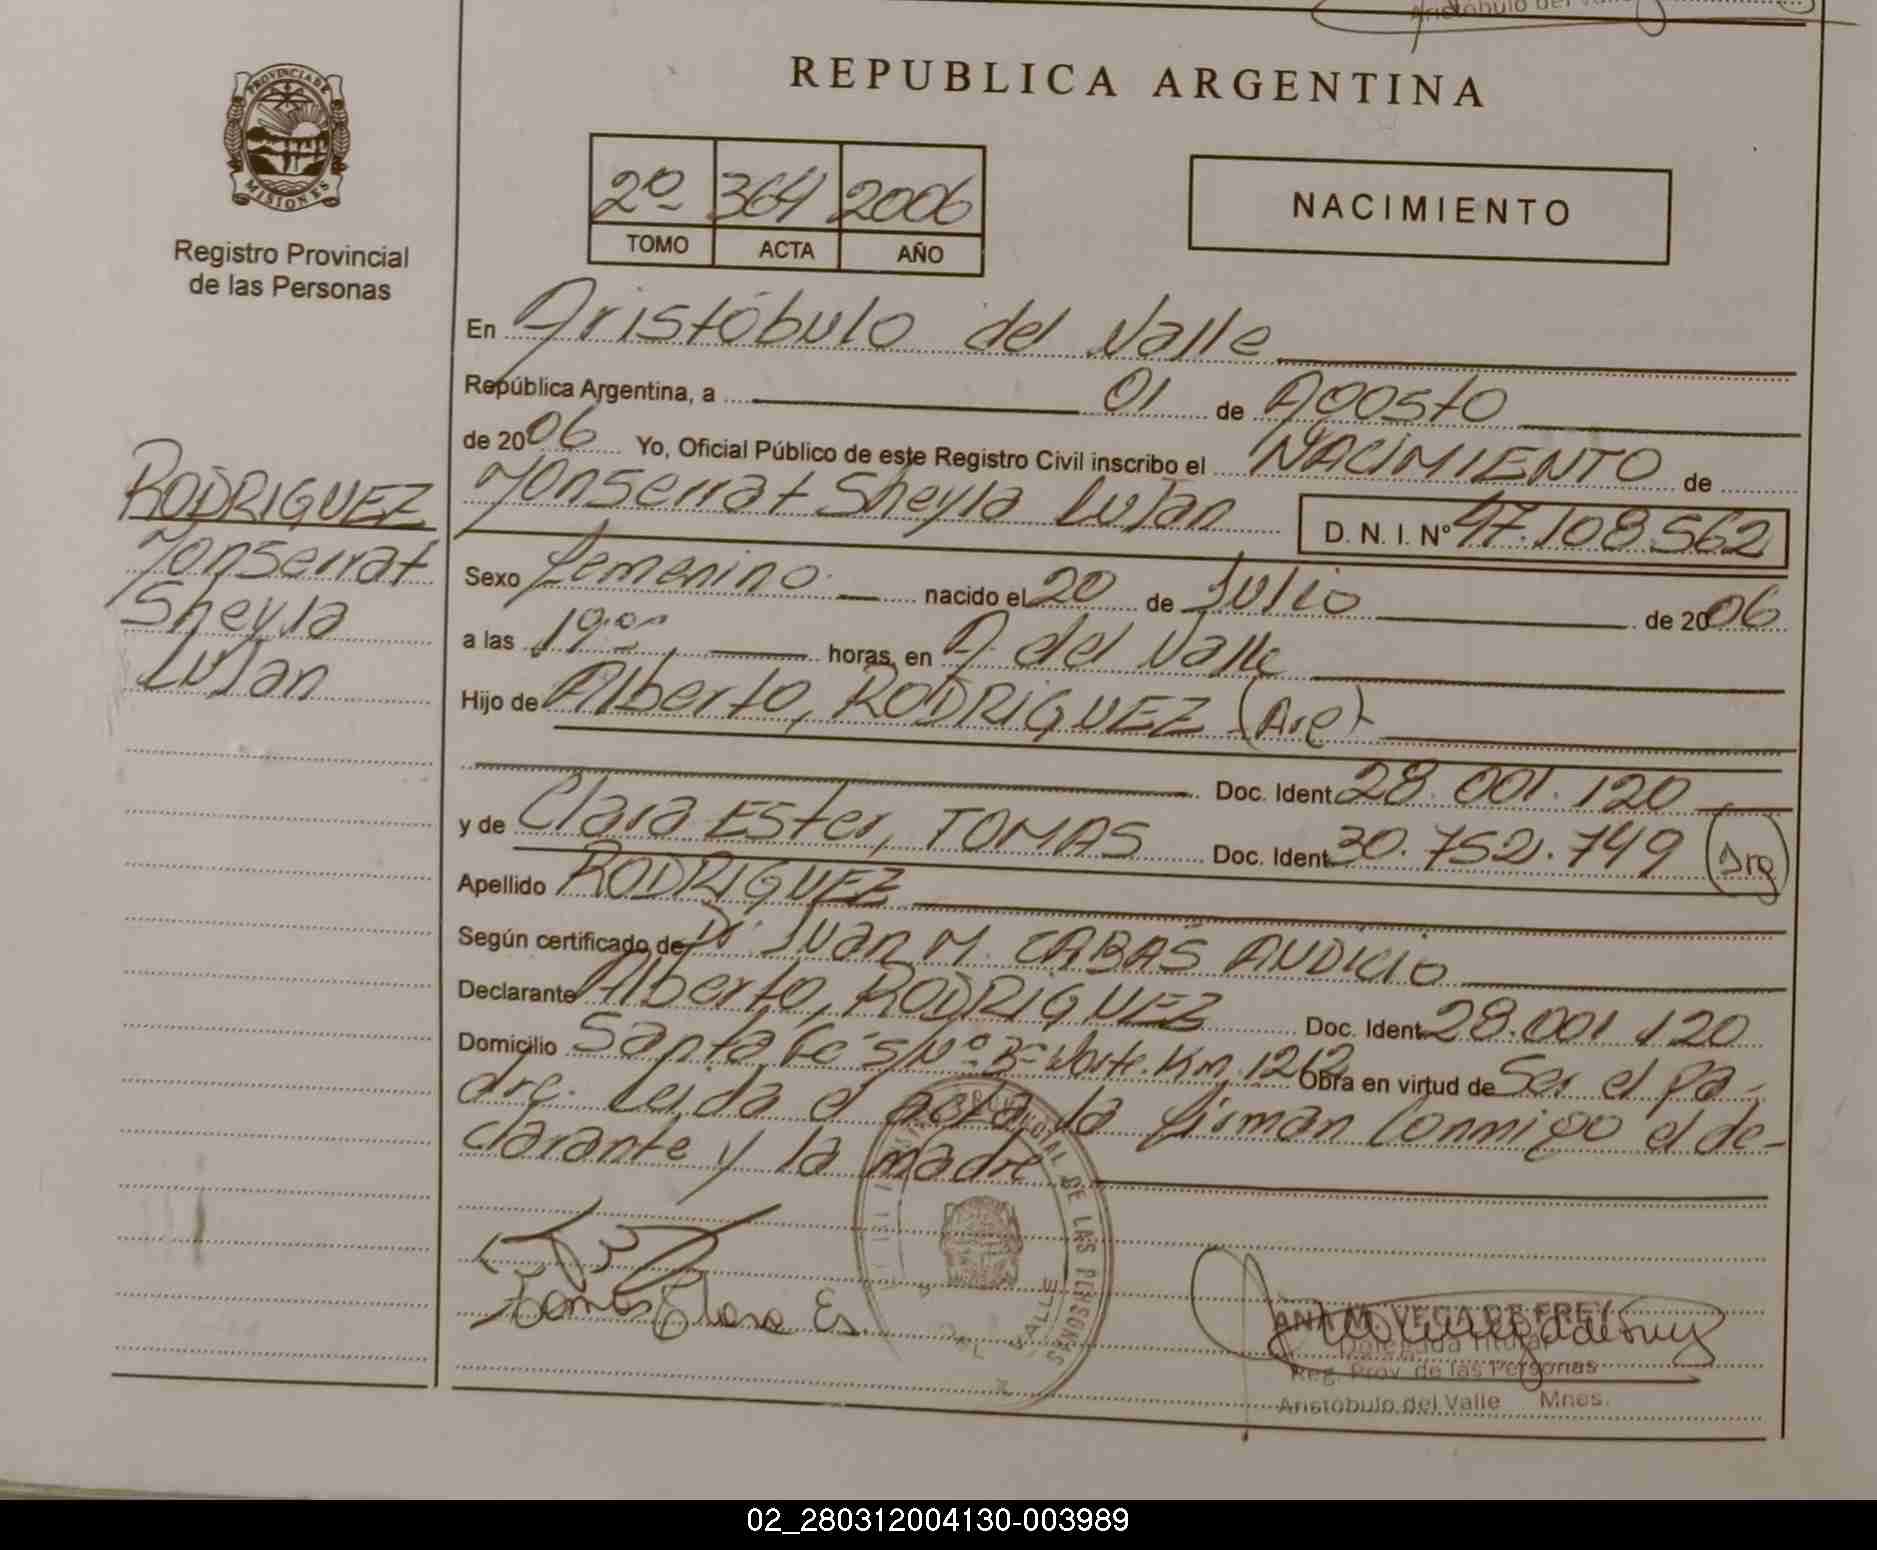 Aristóbulo del Valle
REPUBLICA ARGENTINA
PROVINCIA DE
MISIONES
Registro Provincial
de las Personas
2º 364 2006
TOMO ACTA AÑO
NACIMIENTO
En Aristóbulo del Valle
República Argentina, a 01 de Agosto
de 2006 Yo, Oficial Público de este Registro Civil inscribo el NACIMIENTO de
Monserrat Sheyla Lujan D. N. I. Nº 47.108.562
RODRIGUEZ
Monserrat
Sheyla
Lujan
Sexo femenino nacido el 20 de Julio de 2006
a las 19:00 horas, en A. del Valle
Hijo de Alberto, RODRIGUEZ (Arg)
Doc. Ident. 28.001.120
y de Clara Ester, TOMAS Doc. Ident. 30.752.749 (Arg)
Apellido RODRIGUEZ
Según certificado de Dr. Juan M. CABAS AUDICIO
Declarante Alberto, RODRIGUEZ Doc. Ident. 28.001.120
Domicilio Santa Fé S/Nº Bº Norte. Km. 1212 Obra en virtud de Ser el pa-
dre. Leida el acta la firman Conmigo el de-
clarante y la madre
DE LAS PERSONAS
DEL VALLE
Tomas Clara Es.
ANA M. VEGA DE FREY
Delegada Titular
Reg. Prov. de las Personas
Aristóbulo del Valle Mnes.
02_280312004130-003989